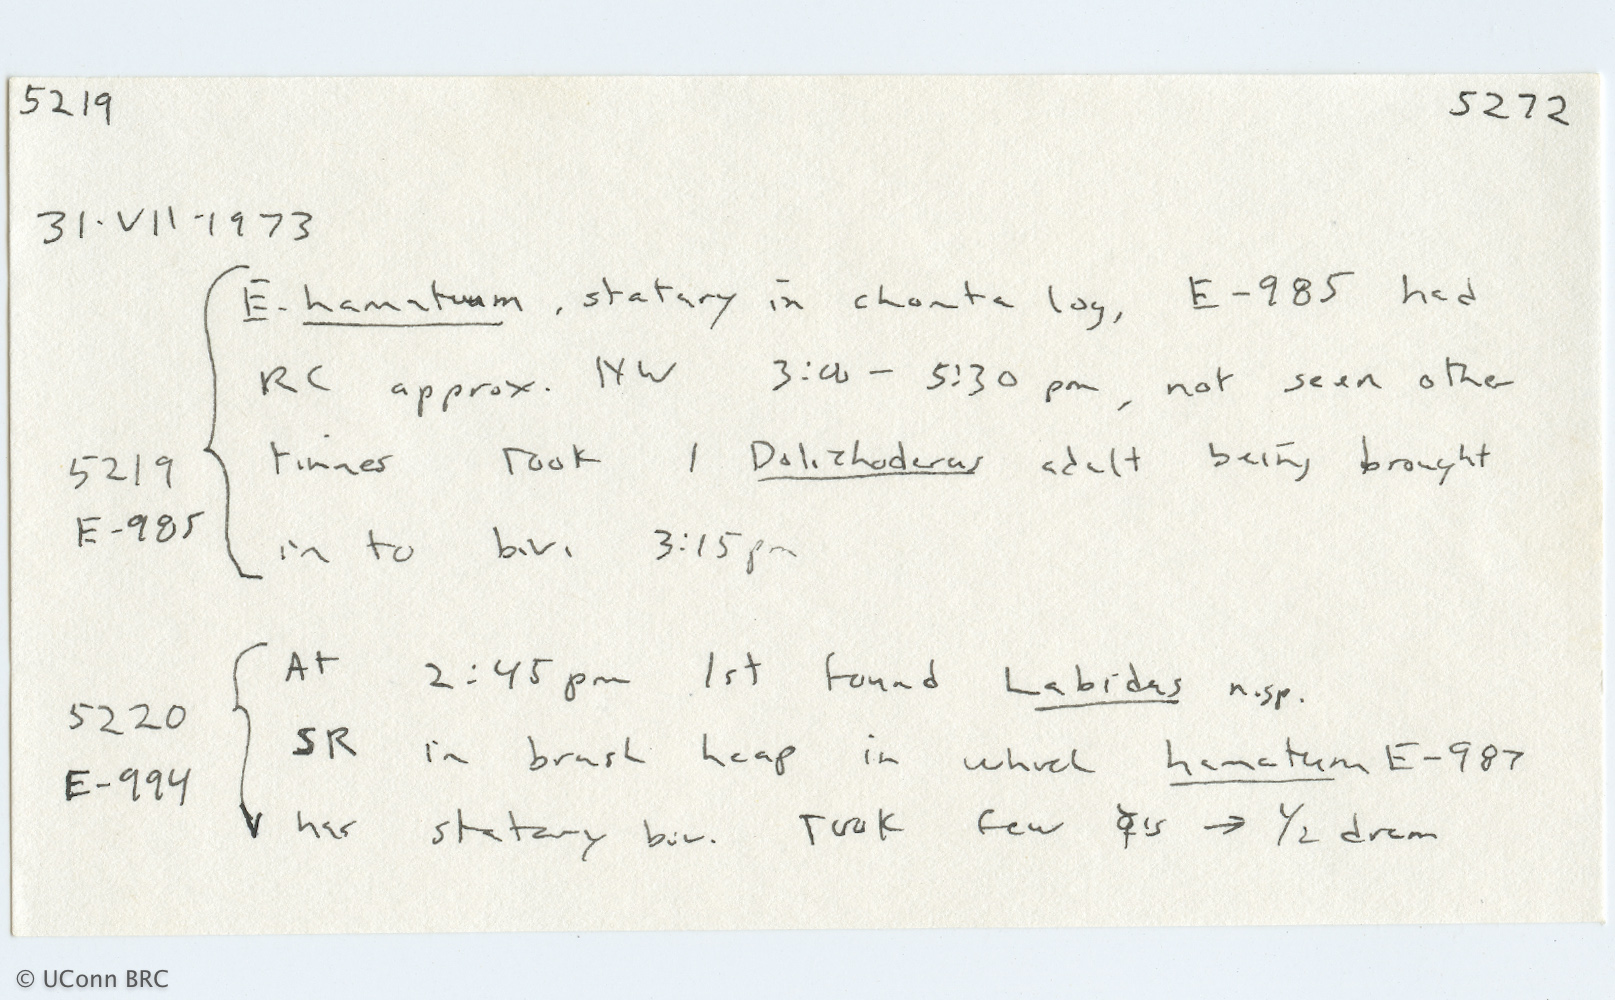 5219 5272
31·VII·1973
E. hamatum, statary in chonta log, E-985 had
RC approx. NW 3:00 - 5:30 pm, not seen other
5219 times Took 1 Dolichoderus adult being brought
E-985 in to biv. 3:15pm
At 2:45 pm 1st found Labidus n.sp.
5220 SR in brush heap in which hamatum E-987
E-994 has statary biv. Took few ☿'s → 1/2 dram
© UConn BRC